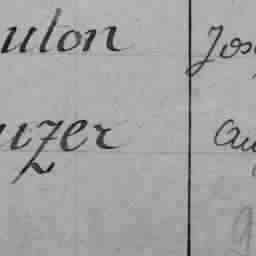 ulon Jos
uzer Au